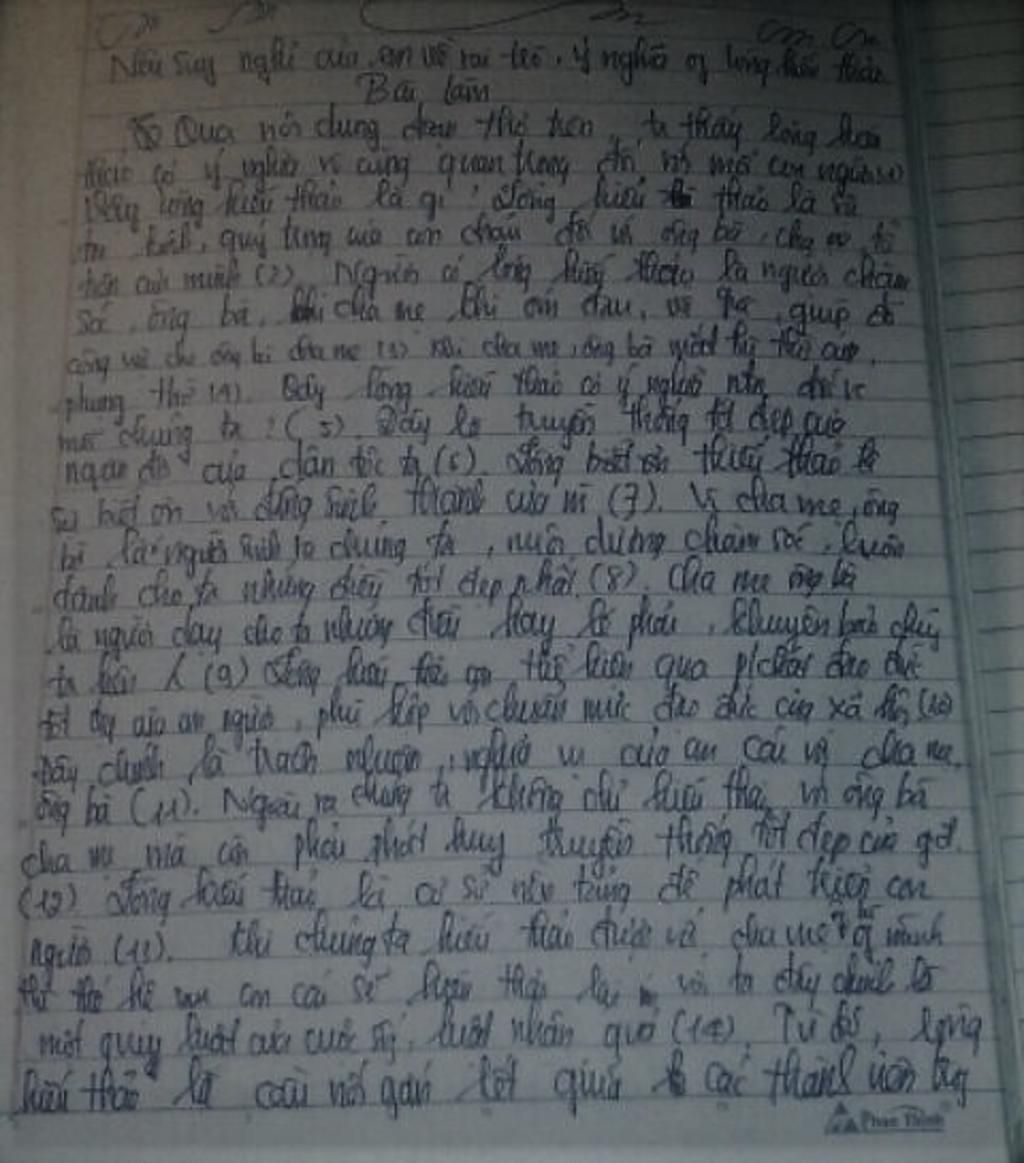 Nêu suy nghĩ của em về vai trò, ý nghĩa of lòng hiếu thảo
Bài làm
Qua nội dung đoạn thơ trên, ta thấy lòng hiếu
thảo có ý nghĩa vô cùng quan trọng đối với mỗi con người (1)
Vậy lòng hiếu thảo là gì? Lòng hiếu thảo là sự
kính, quý trọng của con cháu đối với ông bà, cha mẹ, tổ
tiên của mình (2). Người có lòng hiếu thảo là người chăm
sóc, ông bà, cha mẹ khi ốm đau, về già, giúp đỡ
công việc cho ông bà cha mẹ (3) Khi cha mẹ, ông bà mất thì thờ cúng,
phụng thờ (4). Vậy lòng hiếu thảo có ý nghĩa ntn đối với
mỗi chúng ta? (5). Đây là truyền thống tốt đẹp của
ngàn đời của dân tộc ta (6). Lòng hiếu thảo là
sự biết ơn với đấng sinh thành của mình (7). Vì cha mẹ, ông
bà là người sinh ra chúng ta, nuôi dưỡng chăm sóc, luôn
dành cho ta những điều tốt đẹp nhất (8). Cha mẹ ông bà
là người dạy cho ta những điều hay lẽ phải, khuyên bảo chúng
ta (9) Lòng hiếu thảo thể hiện qua p/chất đạo đức
tốt đẹp của con người, phù hợp với chuẩn mực đạo đức của xã hội (10)
Đây chính là trách nhiệm, nghĩa vụ của con cái với cha mẹ,
ông bà (11). Ngoài ra chúng ta không chỉ hiếu thảo với ông bà
cha mẹ mà còn phải phát huy truyền thống tốt đẹp của gđ.
(12) Lòng hiếu thảo là cơ sở nền tảng để phát triển con
người (13). Khi chúng ta hiếu thảo với cha mẹ mình
thì thế hệ con cái sẽ hiếu thảo lại với ta đây chính là
một quy luật của cuộc sống, luật nhân quả (14). Từ đó, lòng
hiếu thảo là cầu nối gắn kết giữa các thành viên trong
Phan Thành